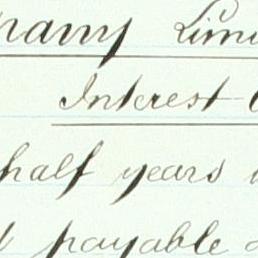 pany Limi
Interest
half years
payable